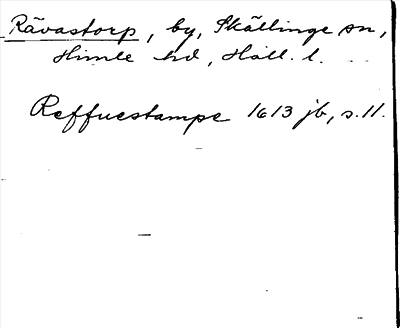 Rävastorp, by, Skällinge sn,
Himle hd, Hall. l.
Reffuestampe 1613 jb, s. 11.